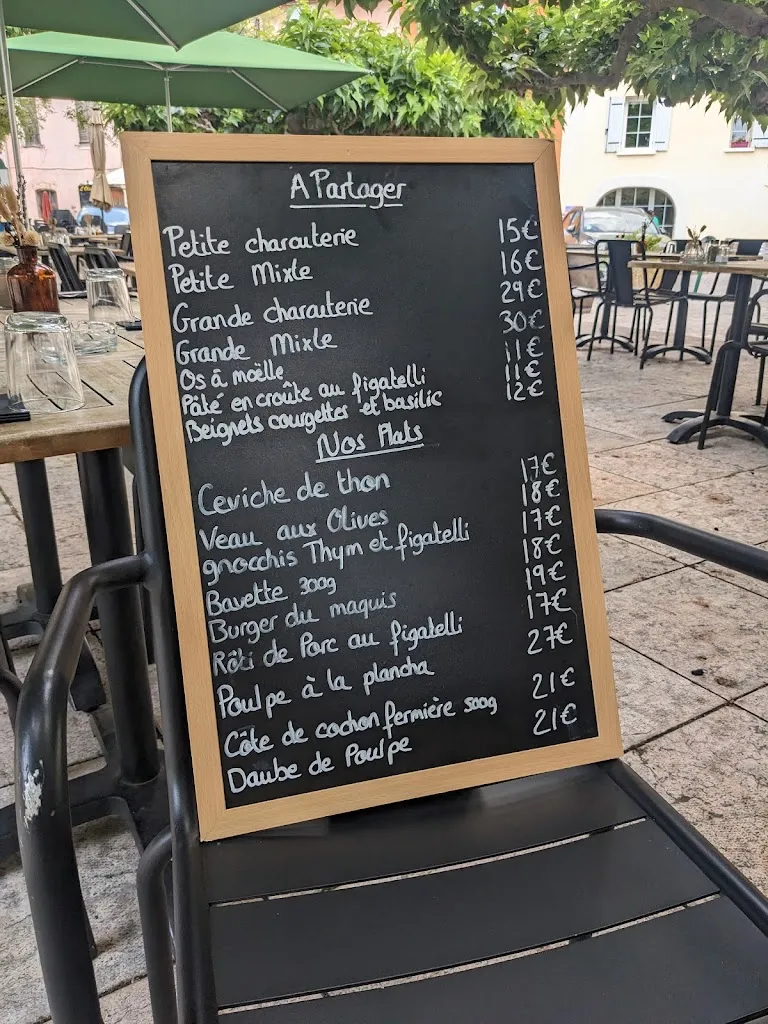 A Partager
Petite charcuterie 15€
Petite Mixte 16€
Grande charcuterie 29€
Grande Mixte 30€
Os à moëlle 11€
Pâté en croûte au figatelli 11€
Beignets courgettes et basilic 12€
Nos Plats
Ceviche de thon 17€
Veau aux Olives 18€
gnocchis Thym et figatelli 17€
Bavette 300g 18€
Burger du maquis 19€
Rôti de Porc au figatelli 17€
Poulpe à la plancha 27€
Côte de cochon fermière 500g 21€
Daube de Poulpe 21€